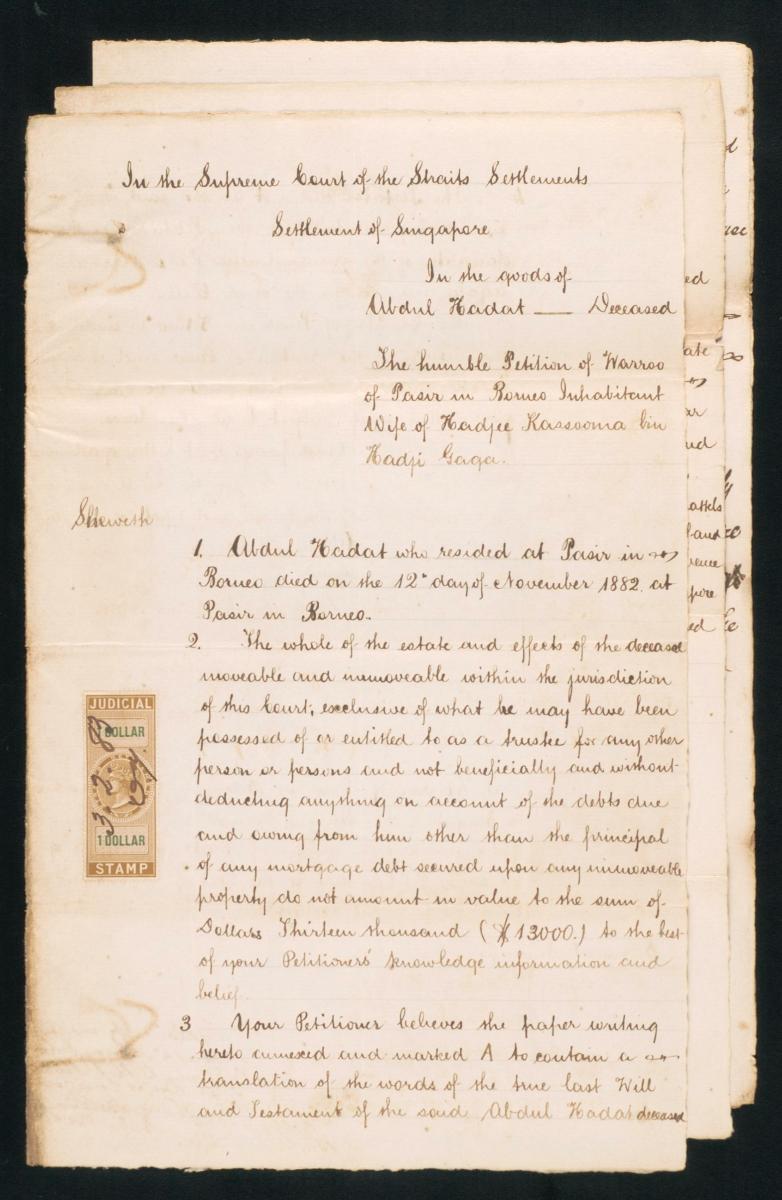 In the Supreme Court of the Straits Settlements
Settlement of Singapore
In the goods of
Abdul Hadat — Deceased
The humble Petition of Warroo
of Pasir in Borneo Inhabitant
Wife of Hadjee Kassooma bin
Hadji Gaga.
Sheweth
1. Abdul Hadat who resided at Pasir in
Borneo died on the 12th day of November 1882 at
Pasir in Borneo.
2. The whole of the estate and effects of the deceased
moveable and immoveable within the jurisdiction
of this Court, exclusive of what he may have been
possessed of or entitled to as a trustee for any other
person or persons and not beneficially and without
deducting anything on account of the debts due
and owing from him other than the principal
of any mortgage debt secured upon any immoveable
property do not amount in value to the sum of
Dollars Thirteen thousand ($13000.) to the best
of your Petitioners' knowledge information and
belief.
3 Your Petitioner believes the paper writing
hereto annexed and marked A to contain a
translation of the words of the true last Will
and Testament of the said Abdul Hadat deceased
JUDICIAL
DOLLAR
3. 3. 83
1 DOLLAR
STAMP
ed
ate
ar
and
attels
and
rence
pore
ed